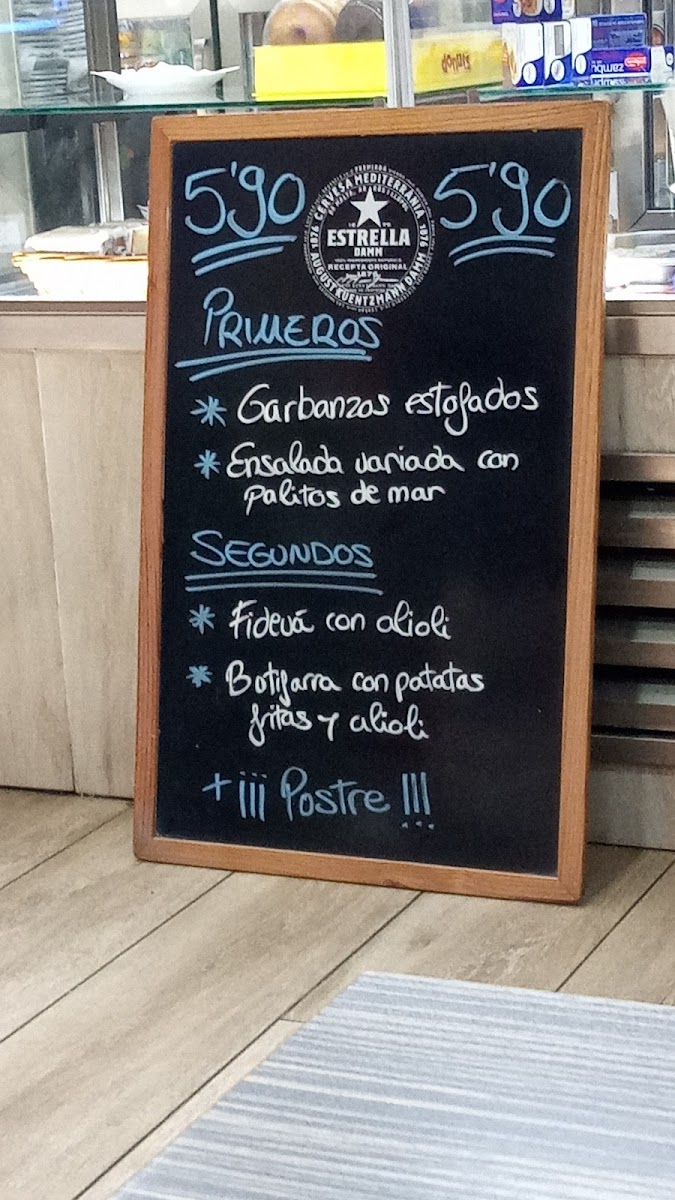 5'90
5'90
CERVESA MEDITERRÀNIA
1876
1876
ESTRELLA
DAMM
RECEPTA ORIGINAL
1876
AUGUST KUENTZMANN DAMM
PRIMEROS
* Garbanzos estofados
* Ensalada variada con
palitos de mar
SEGUNDOS
* Fidevá con alioli
* Botifarra con patatas
fritas y alioli
+ ¡¡¡ Postre !!!
donuts
zambu